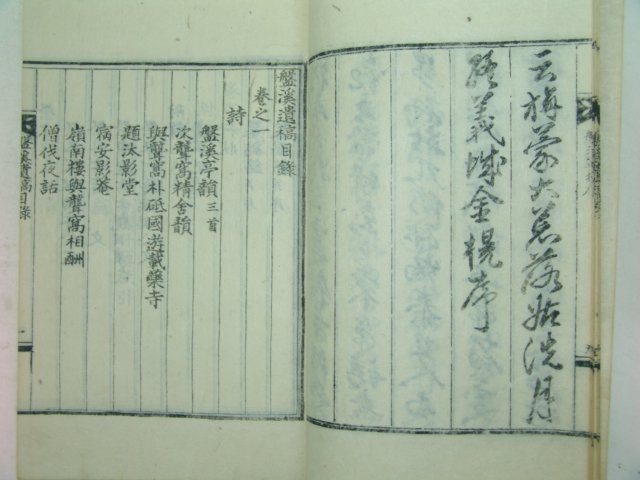 云旃蒙大荒落姑洗月
聞韶金榥序
盤溪遺稿目錄
卷之一
詩
盤溪亭韻三首
次聾窩精舍韻
與聾窩朴砥國遊載藥寺
題汰影堂
宿安影菴
嶺南樓與聾窩相酬
僧伐夜話
盤溪遺稿目錄 一